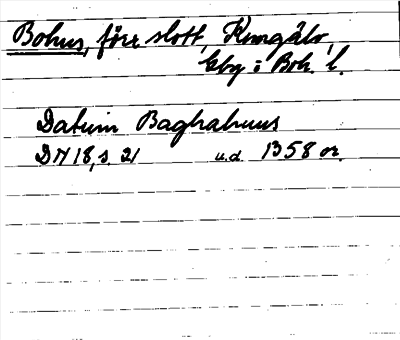 Bohus, förr slott, Kungälv,
Gbg i Boh. l.
Datum Baghahuus
DN 18, s. 21 u.d. 1358 or.